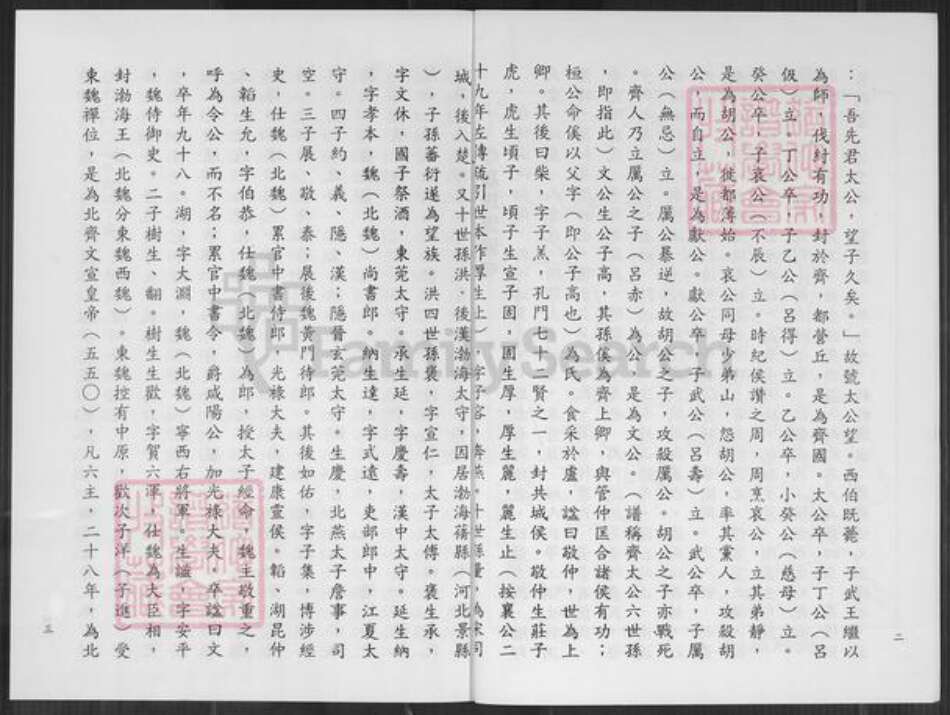 ：「吾先君太公，望子久矣。」故號太公望。西伯既薨，子武王繼以
為師，伐紂有功，封於齊，都營丘，是為齊國。太公卒，子丁公（呂
伋）立。丁公卒，子乙公（呂得）立。乙公卒，小癸公（慈母）立。
癸公卒，子哀公（不辰）立。時紀侯讚之周，周烹哀公，立其弟靜，
是為胡公，徙都薄始。哀公同母少弟山，怨胡公，率其黨人，攻殺胡
公，而自立，是為獻公。獻公卒，子武公（呂壽）立。武公卒，子厲
公（無忌）立。厲公暴逆，故胡公之子，攻殺厲公。胡公之子亦戰死
。齊人乃立厲公之子（呂赤）為公，是為文公。（譜稱齊太公六世孫
，即指此）文公生公子高，其孫傒為齊上卿，與管仲匡合諸侯有功；
桓公命傒以父字（即公子高也）為氏。食采於盧，諡曰敬仲，世為上
卿。其後曰柴，字子羔，孔門七十二賢之一，封共城侯。敬仲生莊子
虎，虎生頃子，頃子生宣子固，固生厚，厚生麗，麗生止（按襄公二
十九年左傳疏引世本作厚生止），字子容，奔燕。十世孫量，為宋司
城，後入楚。又十世孫洪，後漢渤海太守，因居渤海蓨縣（河北景縣
），子孫蕃衍遂為望族。洪四世孫褒，字宣仁，太子太傅。褒生承，
字文休，國子祭酒，東莞太守。承生延，字慶壽，漢中太守。延生納
，字孝本，魏（北魏）尚書郎。納生達，字式遠，吏部郎中，江夏太
守。四子約、義、隱、漢；隱晉玄菟太守。生慶，北燕太子詹事，司
空。三子展、敬、泰；展後魏黃門侍郎。其後如佑，字子集，博涉經
史，仕魏（北魏）累官中書侍郎，光祿大夫，建康靈侯。韜、湖昆仲
、韜生允，字伯恭，仕魏（北魏）為郎，授太子經命，魏主敬重之，
呼為令公，而不名；累官中書令，爵咸陽公，加光祿大夫，卒諡曰文
，卒年九十八。湖，字大淵，魏（北魏）寧西右將軍。生謐，字安平
，魏侍御史。二子樹生、翻。樹生生歡，字賀六渾，仕魏為大臣相，
封渤海王（北魏分東魏西魏）。東魏控有中原，歡次子洋（子進）受
東魏禪位，是為北齊文宣皇帝（五五〇），凡六主，二十八年，為北
二
五
FamilySearch